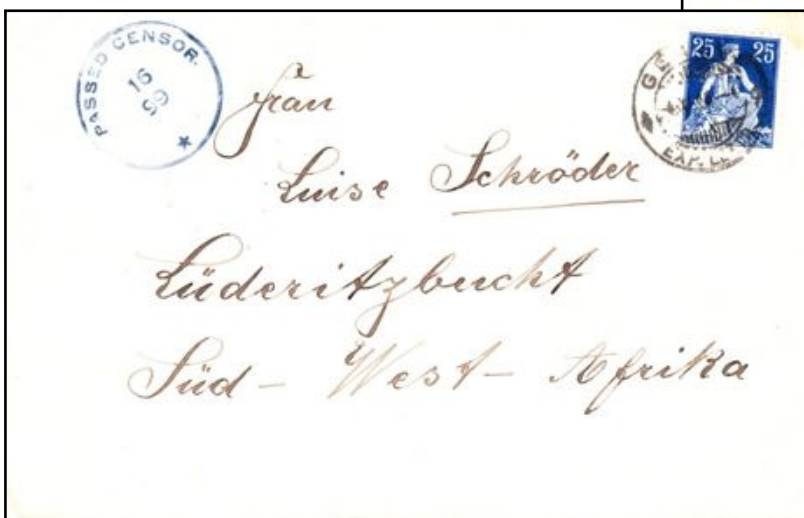 PASSED CENSOR.
16
99
25 25
EXP. LE
Frau
Luise Schröder
Lüderitzbucht
Süd - West - Afrika